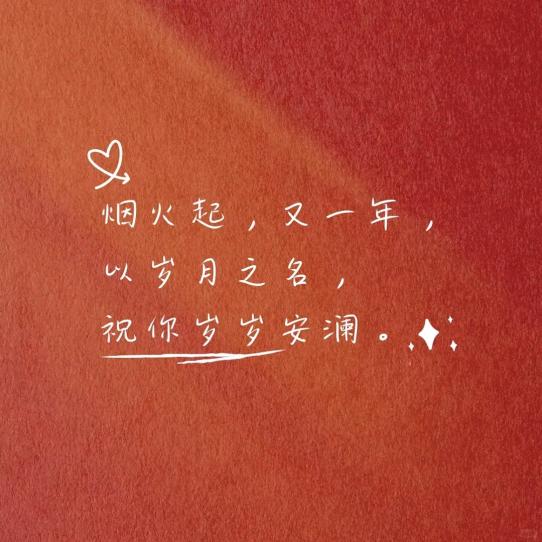 烟火起，又一年，
以岁月之名，
祝你岁岁安澜。